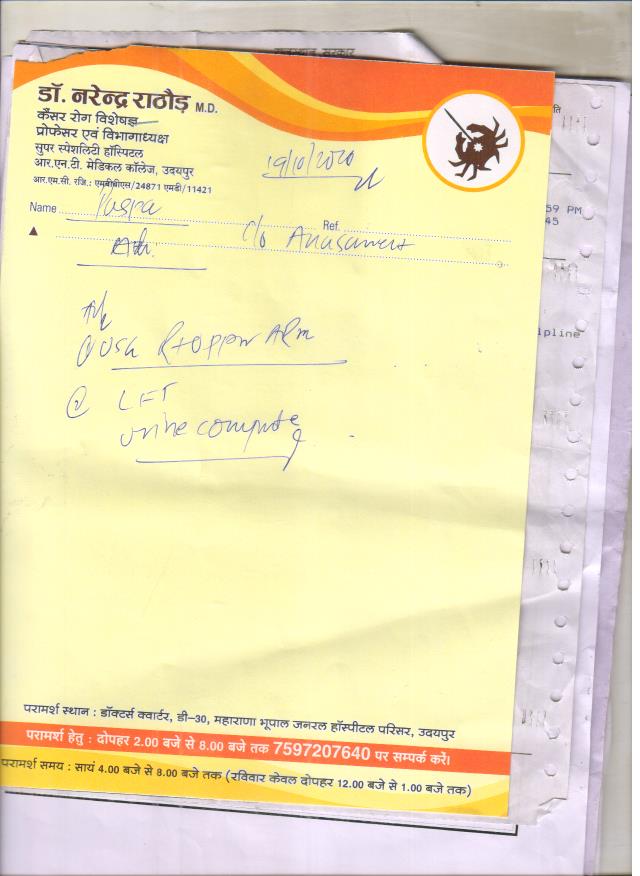 राजस्थान सरकार
डॉ. नरेन्द्र राठौड़ M.D.
कैंसर रोग विशेषज्ञ
प्रोफेसर एवं विभागाध्यक्ष
सुपर स्पेशलिटी हॉस्पिटल
आर.एन.टी. मेडिकल कॉलेज, उदयपुर
आर.एम.सी. रजि.: एमबीबीएस/24871 एमडी/11421
19/10/2020
Name
Ref.
c/o
59 PM
45
lpline
USG Rt Upper ARM
② LFT
urine complete
परामर्श स्थान : डॉक्टर्स क्वार्टर, डी-30, महाराणा भूपाल जनरल हॉस्पीटल परिसर, उदयपुर
परामर्श हेतु : दोपहर 2.00 बजे से 8.00 बजे तक 7597207640 पर सम्पर्क करें।
परामर्श समय : सायं 4.00 बजे से 8.00 बजे तक (रविवार केवल दोपहर 12.00 बजे से 1.00 बजे तक)